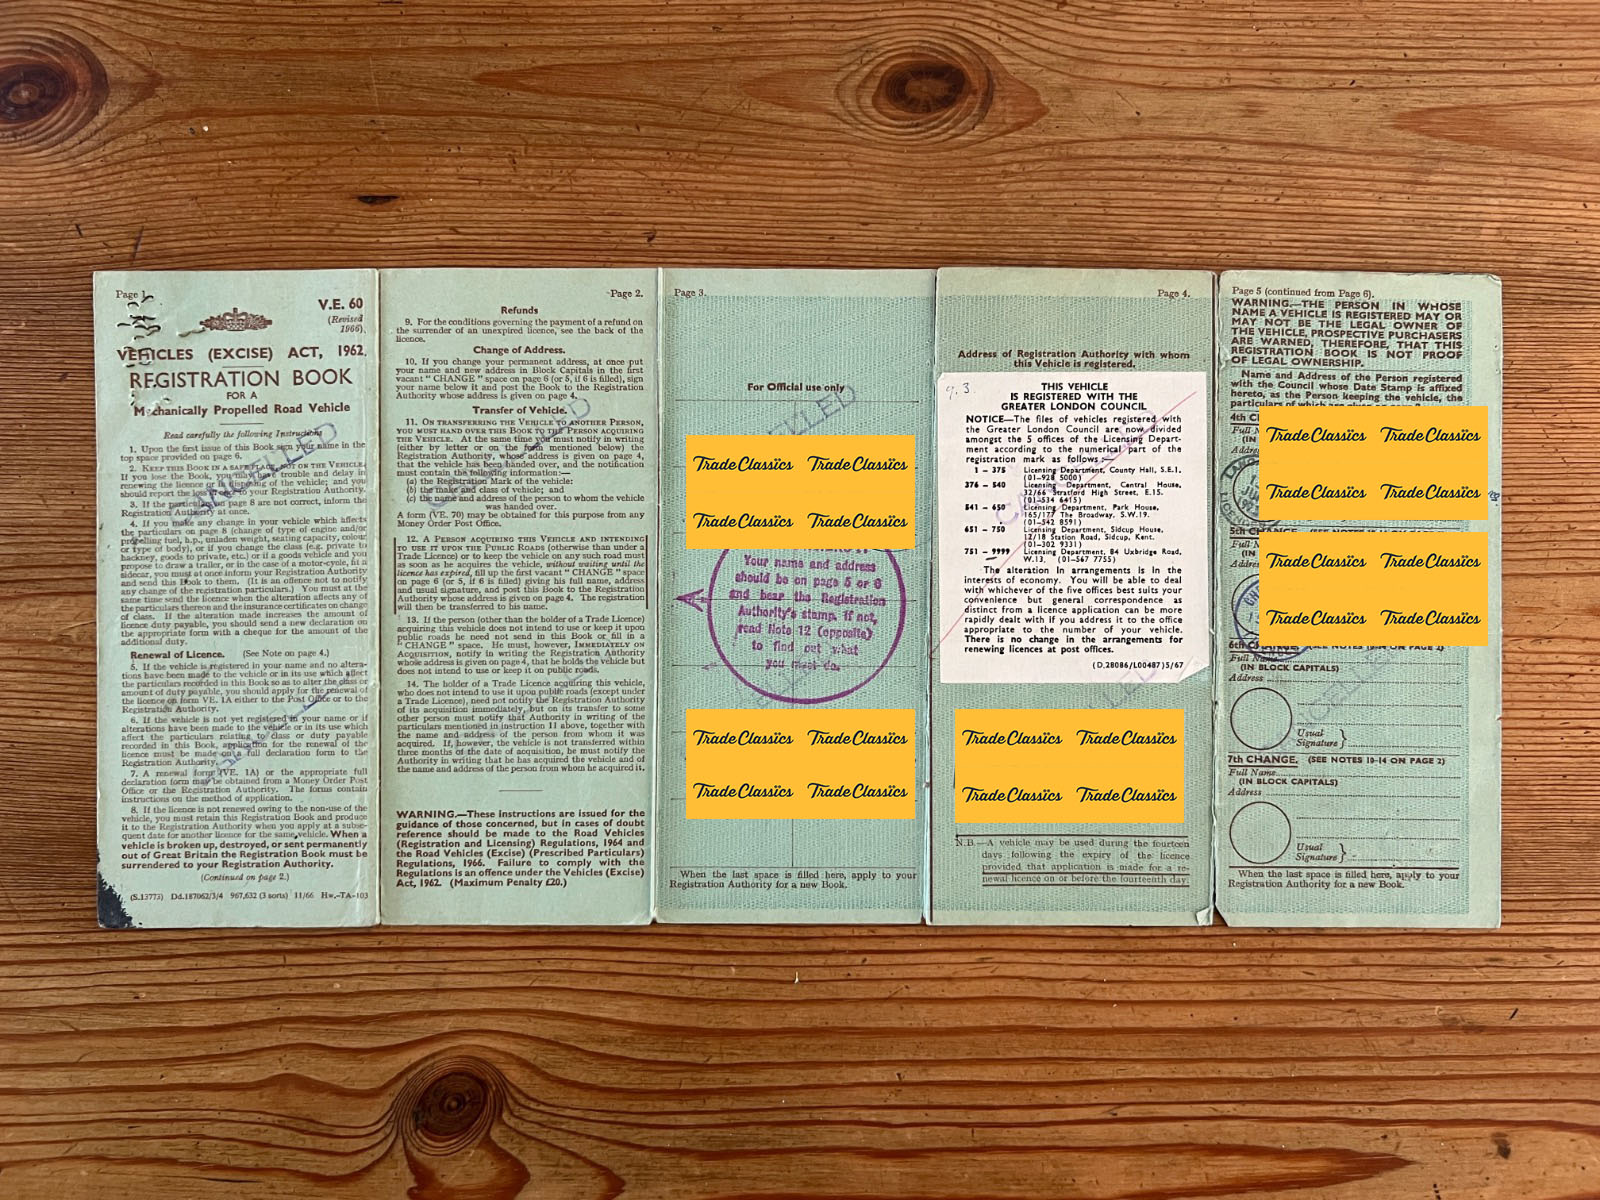 Page 1.
V.E. 60
(Revised
1966).
VEHICLES (EXCISE) ACT, 1962.
REGISTRATION BOOK
FOR A
Mechanically Propelled Road Vehicle
Read carefully the following Instructions
1. Upon the first issue of this Book sign your name in the
top space provided on page 6.
2. KEEP THIS BOOK IN A SAFE PLACE, NOT ON THE VEHICLE.
If you lose the Book, you may have trouble and delay in
renewing the licence or in disposing of the vehicle; and you
should report the loss at once to your Registration Authority.
3. If the particulars on page 8 are not correct, inform the
Registration Authority at once.
4. If you make any change in your vehicle which affects
the particulars on page 8 (change of type of engine and/or
propelling fuel, h.p., unladen weight, seating capacity, colour
or type of body), or if you change the class (e.g. private to
hackney, goods to private, etc.) or if a goods vehicle and you
propose to draw a trailer, or in the case of a motor-cycle, fit a
sidecar, you must at once inform your Registration Authority
and send this Book to them. (It is an offence not to notify
any change of the registration particulars.) You must at the
same time send the licence when the alteration affects any of
the particulars thereon and the insurance certificates on change
of class. If the alteration made increases the amount of
licence duty payable, you should send a new declaration on
the appropriate form with a cheque for the amount of the
additional duty.
Renewal of Licence. (See Note on page 4.)
5. If the vehicle is registered in your name and no altera-
tions have been made to the vehicle or in its use which affect
the particulars recorded in this Book so as to alter the class or
amount of duty payable, you should apply for the renewal of
the licence on form VE. 1A either to the Post Office or to the
Registration Authority.
6. If the vehicle is not yet registered in your name or if
alterations have been made to the vehicle or in its use which
affect the particulars relating to class or duty payable
recorded in this Book, application for the renewal of the
licence must be made on a full declaration form to the
Registration Authority.
7. A renewal form (VE. 1A) or the appropriate full
declaration form may be obtained from a Money Order Post
Office or the Registration Authority. The forms contain
instructions on the method of application.
8. If the licence is not renewed owing to the non-use of the
vehicle, you must retain this Registration Book and produce
it to the Registration Authority when you apply at a subse-
quent date for another licence for the same vehicle. When a
vehicle is broken up, destroyed, or sent permanently
out of Great Britain the Registration Book must be
surrendered to your Registration Authority.
(Continued on page 2.)
(S.13773) Dd.187062/3/4 967,632 (3 sorts) 11/66 Hw.-TA-103
CANCELLED
Page 2.
Refunds
9. For the conditions governing the payment of a refund on
the surrender of an unexpired licence, see the back of the
licence.
Change of Address.
10. If you change your permanent address, at once put
your name and new address in Block Capitals in the first
vacant "CHANGE" space on page 6 (or 5, if 6 is filled), sign
your name below it and post the Book to the Registration
Authority whose address is given on page 4.
Transfer of Vehicle.
11. ON TRANSFERRING THE VEHICLE TO ANOTHER PERSON,
YOU MUST HAND OVER THIS BOOK TO THE PERSON ACQUIRING
THE VEHICLE. At the same time you must notify in writing
(either by letter or on the form mentioned below) the
Registration Authority, whose address is given on page 4,
that the vehicle has been handed over, and the notification
must contain the following information:—
(a) the Registration Mark of the vehicle:
(b) the make and class of vehicle; and
(c) the name and address of the person to whom the vehicle
was handed over.
A form (VE. 70) may be obtained for this purpose from any
Money Order Post Office.
12. A PERSON ACQUIRING THIS VEHICLE AND INTENDING
TO USE IT UPON THE PUBLIC ROADS (otherwise than under a
Trade Licence) or to keep the vehicle on any such road must
as soon as he acquires the vehicle, without waiting until the
licence has expired, fill up the first vacant "CHANGE" space
on page 6 (or 5, if 6 is filled) giving his full name, address
and usual signature, and post this Book to the Registration
Authority whose address is given on page 4. The registration
will then be transferred to his name.
13. If the person (other than the holder of a Trade Licence)
acquiring this vehicle does not intend to use or keep it upon
public roads he need not send in this Book or fill in a
"CHANGE" space. He must, however, IMMEDIATELY ON
ACQUISITION, notify in writing the Registration Authority
whose address is given on page 4, that he holds the vehicle but
does not intend to use or keep it on public roads.
14. The holder of a Trade Licence acquiring this vehicle,
who does not intend to use it upon public roads (except under
a Trade Licence), need not notify the Registration Authority
of its acquisition immediately, but on its transfer to some
other person must notify that Authority in writing of the
particulars mentioned in instruction 11 above, together with
the name and address of the person from whom it was
acquired. If, however, the vehicle is not transferred within
three months of the date of acquisition, he must notify the
Authority in writing that he has acquired the vehicle and of
the name and address of the person from whom he acquired it.
WARNING.—These instructions are issued for the
guidance of those concerned, but in cases of doubt
reference should be made to the Road Vehicles
(Registration and Licensing) Regulations, 1964 and
the Road Vehicles (Excise) (Prescribed Particulars)
Regulations, 1966. Failure to comply with the
Regulations is an offence under the Vehicles (Excise)
Act, 1962. (Maximum Penalty £20.)
Page 3.
For Official use only
CANCELLED
TradeClassics TradeClassics
TradeClassics TradeClassics
Your name and address
should be on page 5 or 6
and bear the Registration
Authority's stamp. If not,
read Note 12 (opposite)
to find out what
you must do.
TradeClassics TradeClassics
TradeClassics TradeClassics
When the last space is filled here, apply to your
Registration Authority for a new Book.
Page 4.
Address of Registration Authority with whom
this Vehicle is registered.
9.3
THIS VEHICLE
IS REGISTERED WITH THE
GREATER LONDON COUNCIL
NOTICE—The files of vehicles registered with
the Greater London Council are now divided
amongst the 5 offices of the Licensing Depart-
ment according to the numerical part of the
registration mark as follows:—
1 – 375 Licensing Department, County Hall, S.E.1.
(01-928 5000)
376 – 540 Licensing Department, Central House,
32/66 Stratford High Street, E.15.
(01-534 6415)
541 – 650 Licensing Department, Park House,
165/177 The Broadway, S.W.19.
(01-542 8591)
651 – 750 Licensing Department, Sidcup House,
12/18 Station Road, Sidcup, Kent.
(01-302 9331)
751 – 9999 Licensing Department, 84 Uxbridge Road,
W.13. (01-567 7755)
The alteration in arrangements is in the
interests of economy. You will be able to deal
with whichever of the five offices best suits your
convenience but general correspondence as
distinct from a licence application can be more
rapidly dealt with if you address it to the office
appropriate to the number of your vehicle.
There is no change in the arrangements for
renewing licences at post offices.
(D.28086/L00487)5/67
TradeClassics TradeClassics
TradeClassics TradeClassics
N.B.—A vehicle may be used during the fourteen
days following the expiry of the licence
provided that application is made for a re-
newal licence on or before the fourteenth day.
Page 5 (continued from Page 6).
WARNING.—THE PERSON IN WHOSE
NAME A VEHICLE IS REGISTERED MAY OR
MAY NOT BE THE LEGAL OWNER OF
THE VEHICLE, PROSPECTIVE PURCHASERS
ARE WARNED, THEREFORE, THAT THIS
REGISTRATION BOOK IS NOT PROOF
OF LEGAL OWNERSHIP.
Name and Address of the Person registered
with the Council whose Date Stamp is affixed
hereto, as the Person keeping the vehicle, the
particulars of which are given on page 8.
4th
Full
(IN
TradeClassics TradeClassics
TradeClassics TradeClassics
5th
Full
(IN
TradeClassics TradeClassics
TradeClassics TradeClassics
6th CHANGE. (SEE NOTES 10-14 ON PAGE 2)
Full Name
(IN BLOCK CAPITALS)
Address
Usual
Signature
7th CHANGE. (SEE NOTES 10-14 ON PAGE 2)
Full Name
(IN BLOCK CAPITALS)
Address
Usual
Signature
When the last space is filled here, apply to your
Registration Authority for a new Book.